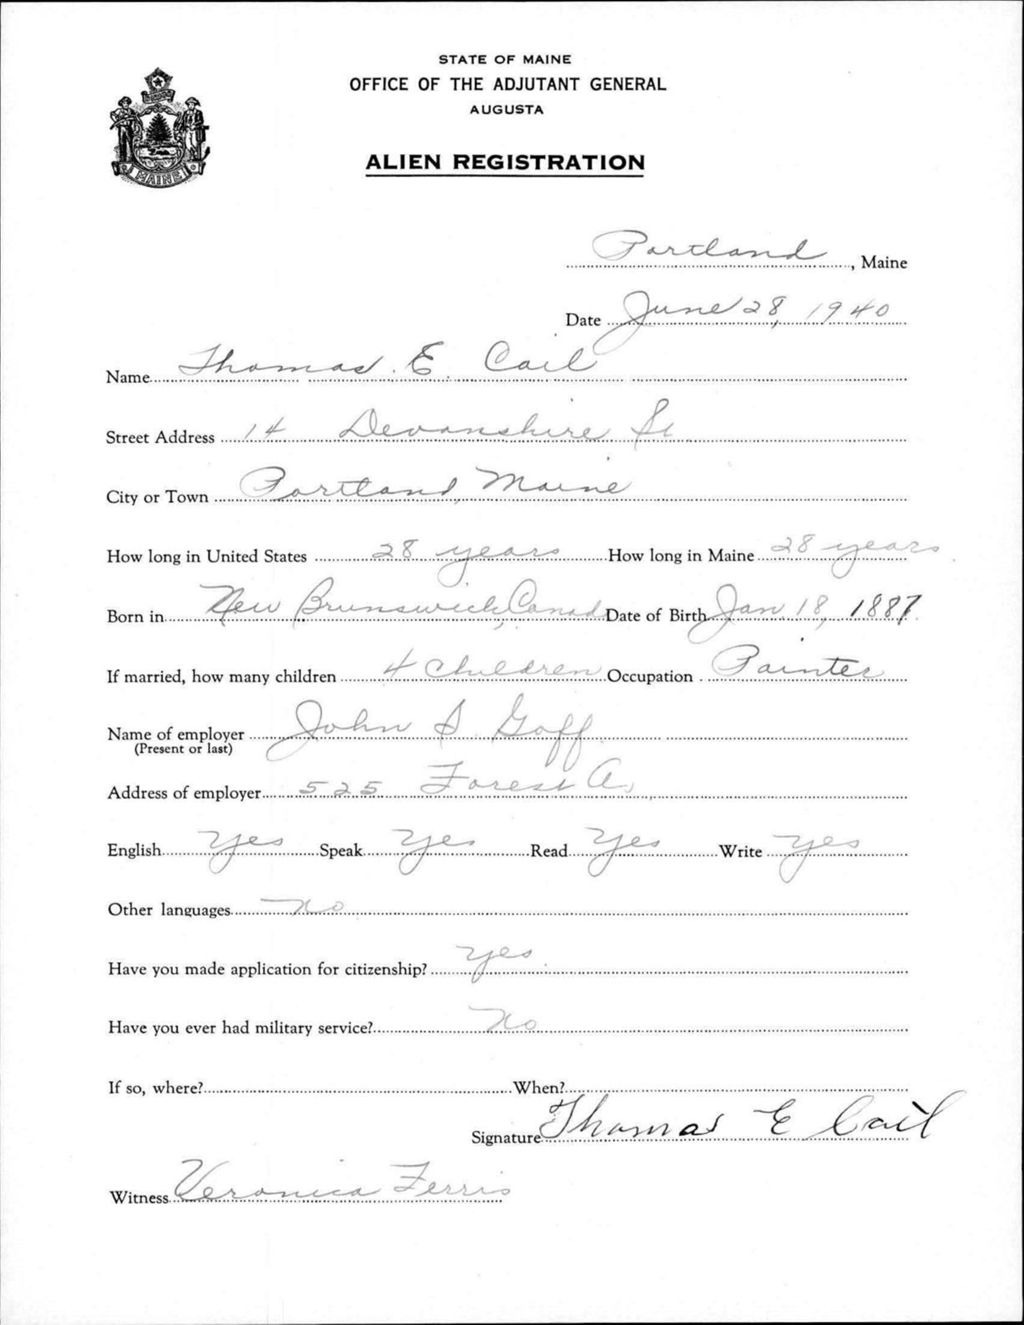 STATE OF MAINE
OFFICE OF THE ADJUTANT GENERAL
AUGUSTA
ALIEN REGISTRATION
MAINE
Portland, Maine
Date June 28, 1940
Name Thomas E. Cail
Street Address 14 Devonshire St
City or Town Portland, Maine
How long in United States 28 years How long in Maine 28 years
Born in New Brunswick, Canada Date of Birth Jan. 18, 1887
If married, how many children 4 children Occupation Painter
Name of employer John S. Goff
(Present or last)
Address of employer 525 Forest A.
English Yes Speak Yes Read Yes Write Yes
Other languages no
Have you made application for citizenship? Yes
Have you ever had military service? No
If so, where? When?
Signature Thomas E Cail
Witness Veronica Ferris